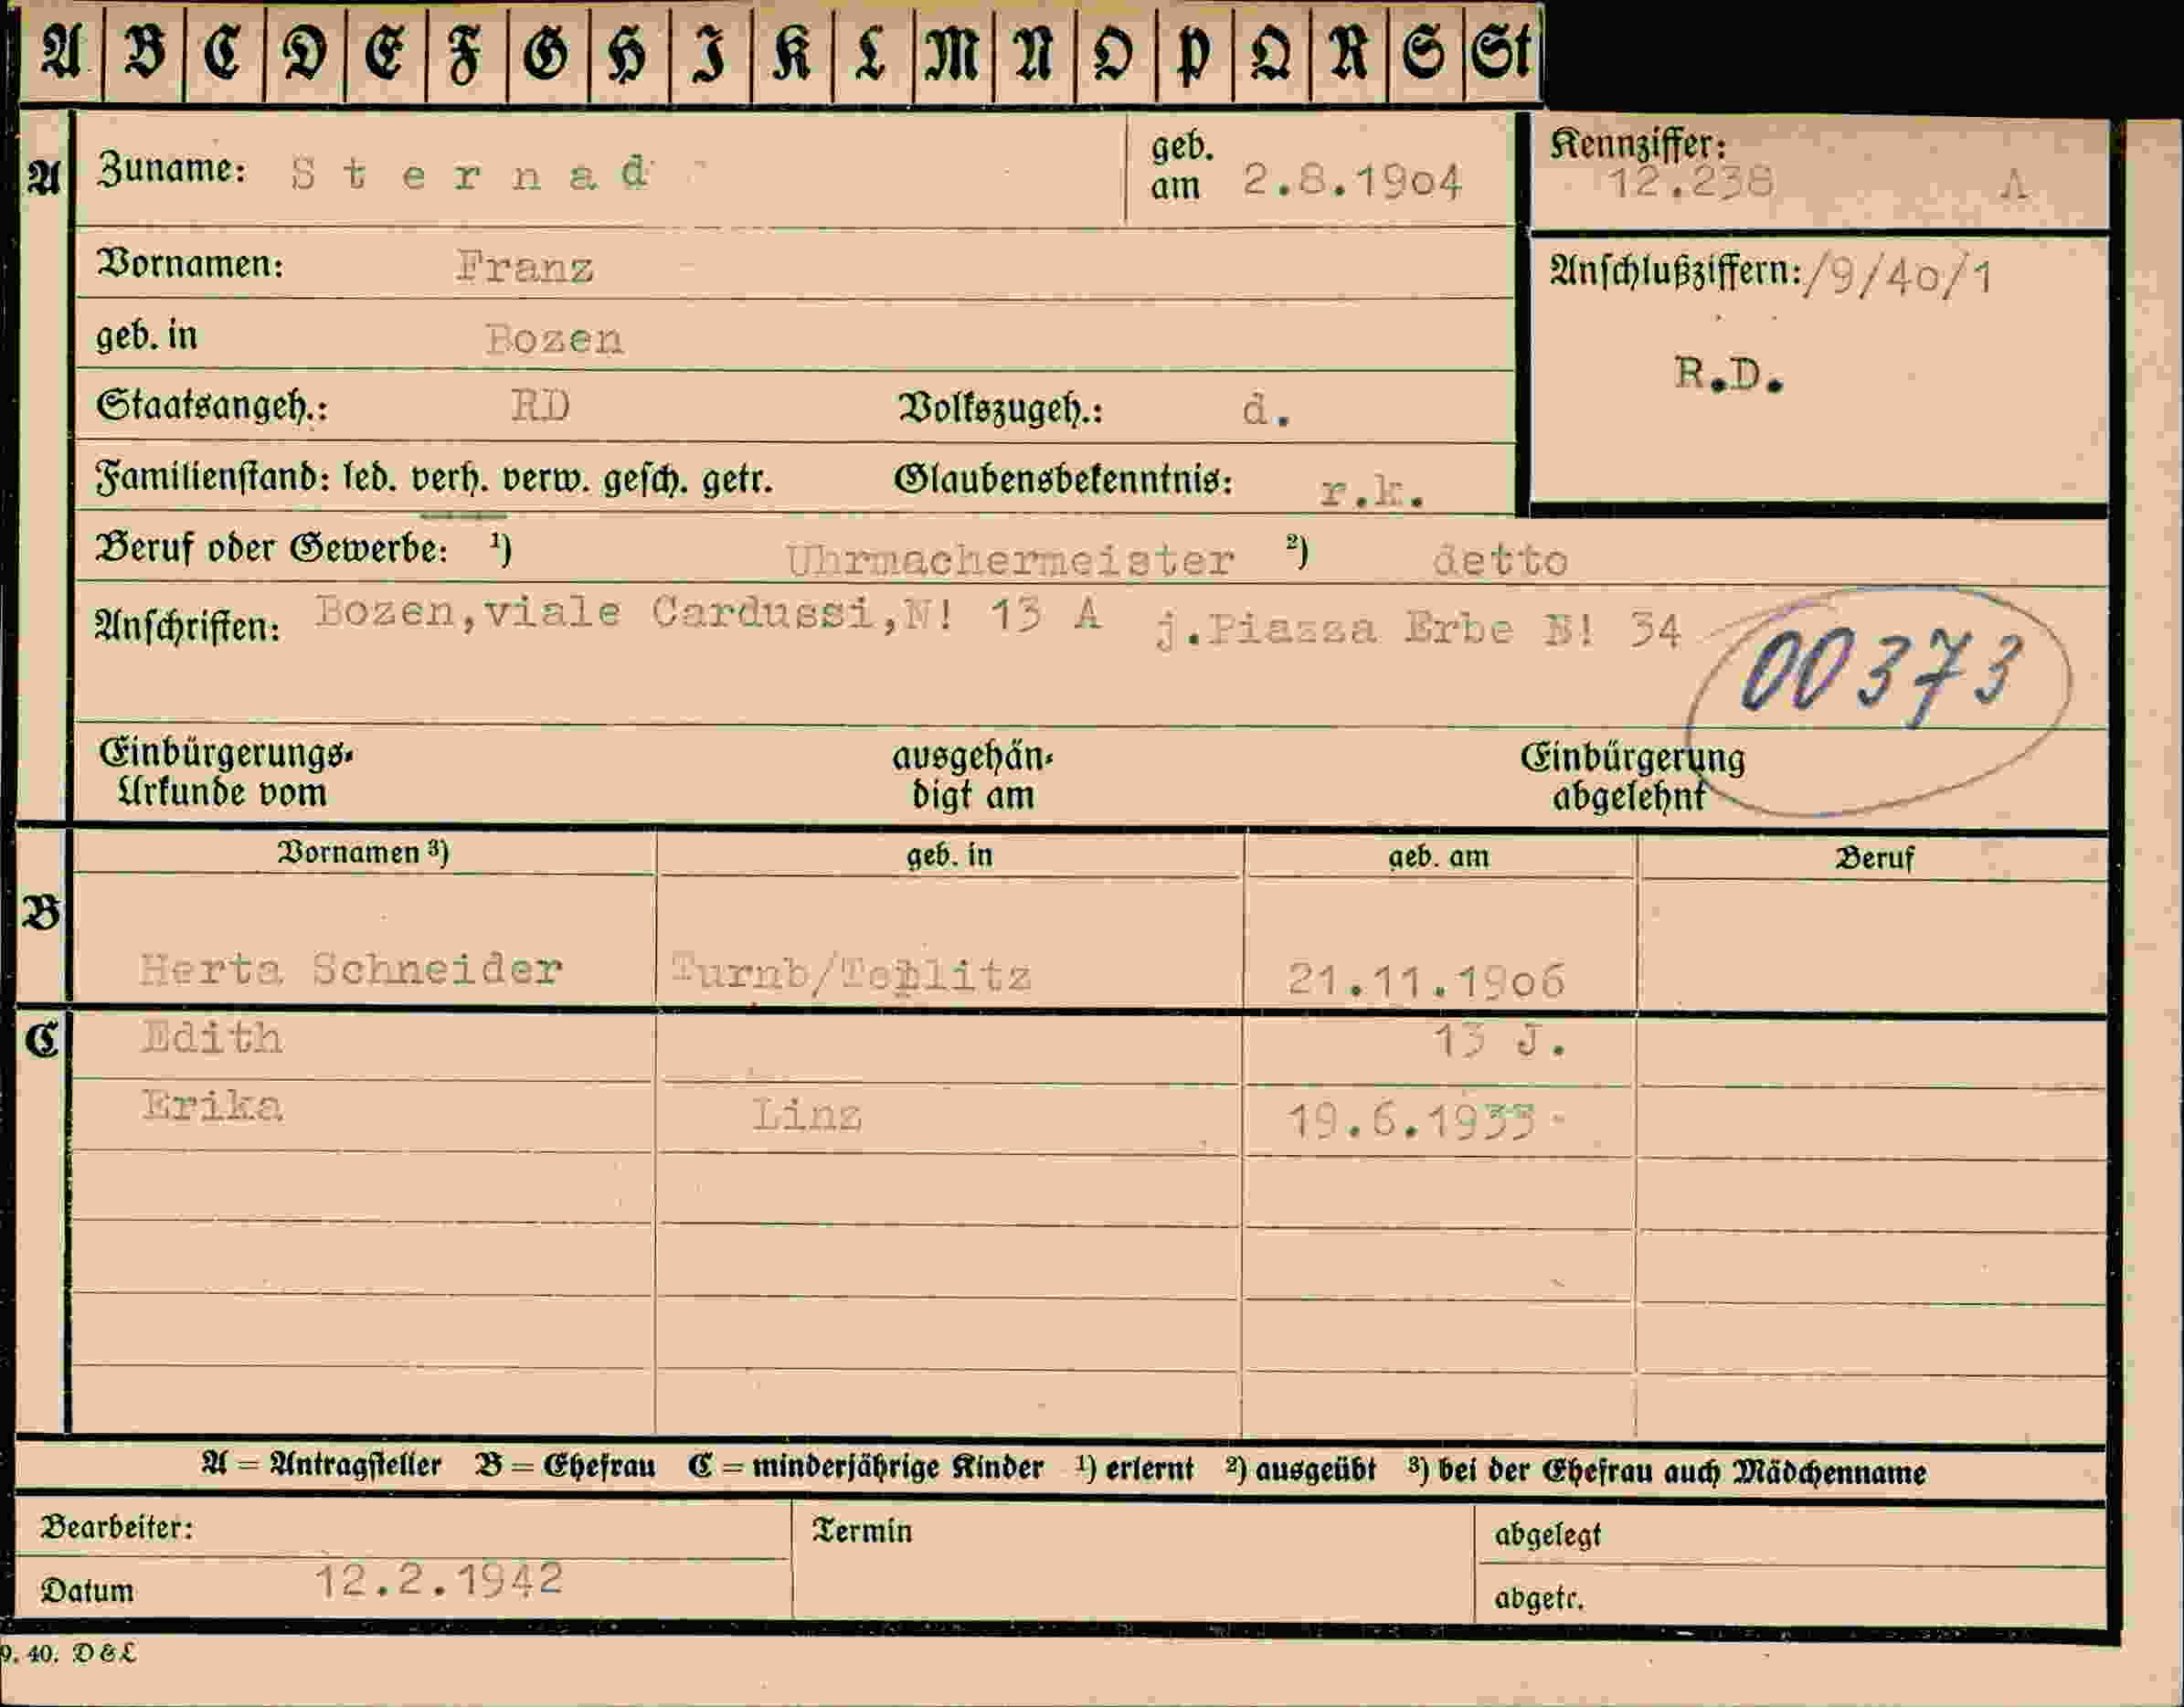 A B C D E F G H I K L M N O P Q R S St
A Zuname: Sternad geb. am 2.8.19o4 Kennziffer: 12.238 A
Vornamen: Franz Anschlußziffern: /9/4o/1
geb. in Bozen
Staatsangeh.: RD Volkszugeh.: d. R.D.
Familienstand: led. verh. verw. gesch. getr. Glaubensbekenntnis: r.k.
Beruf oder Gewerbe: ¹) Uhrmachermeister ²) detto
Anschriften: Bozen,viale Cardussi,N! 13 A j.Piazza Erbe N! 34
00373
Einbürgerungs-
Urkunde vom
ausgehän-
digt am
Einbürgerung
abgelehnt
Vornamen ³) geb. in geb. am Beruf
B
Herta Schneider Turnb/Teplitz 21.11.19o6
C Edith 13 J.
Erika Linz 19.6.1933
A = Antragsteller B = Ehefrau C = minderjährige Kinder ¹) erlernt ²) ausgeübt ³) bei der Ehefrau auch Mädchenname
Bearbeiter: Termin abgelegt
Datum 12.2.1942 abgetr.
9. 40. D & L